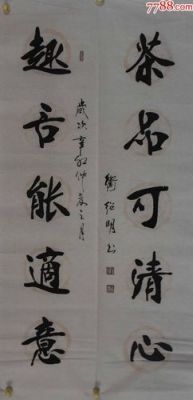 7788.com
茶品可清心
衛紹明书
歲次辛卯仲夏之月
趣舌能適意